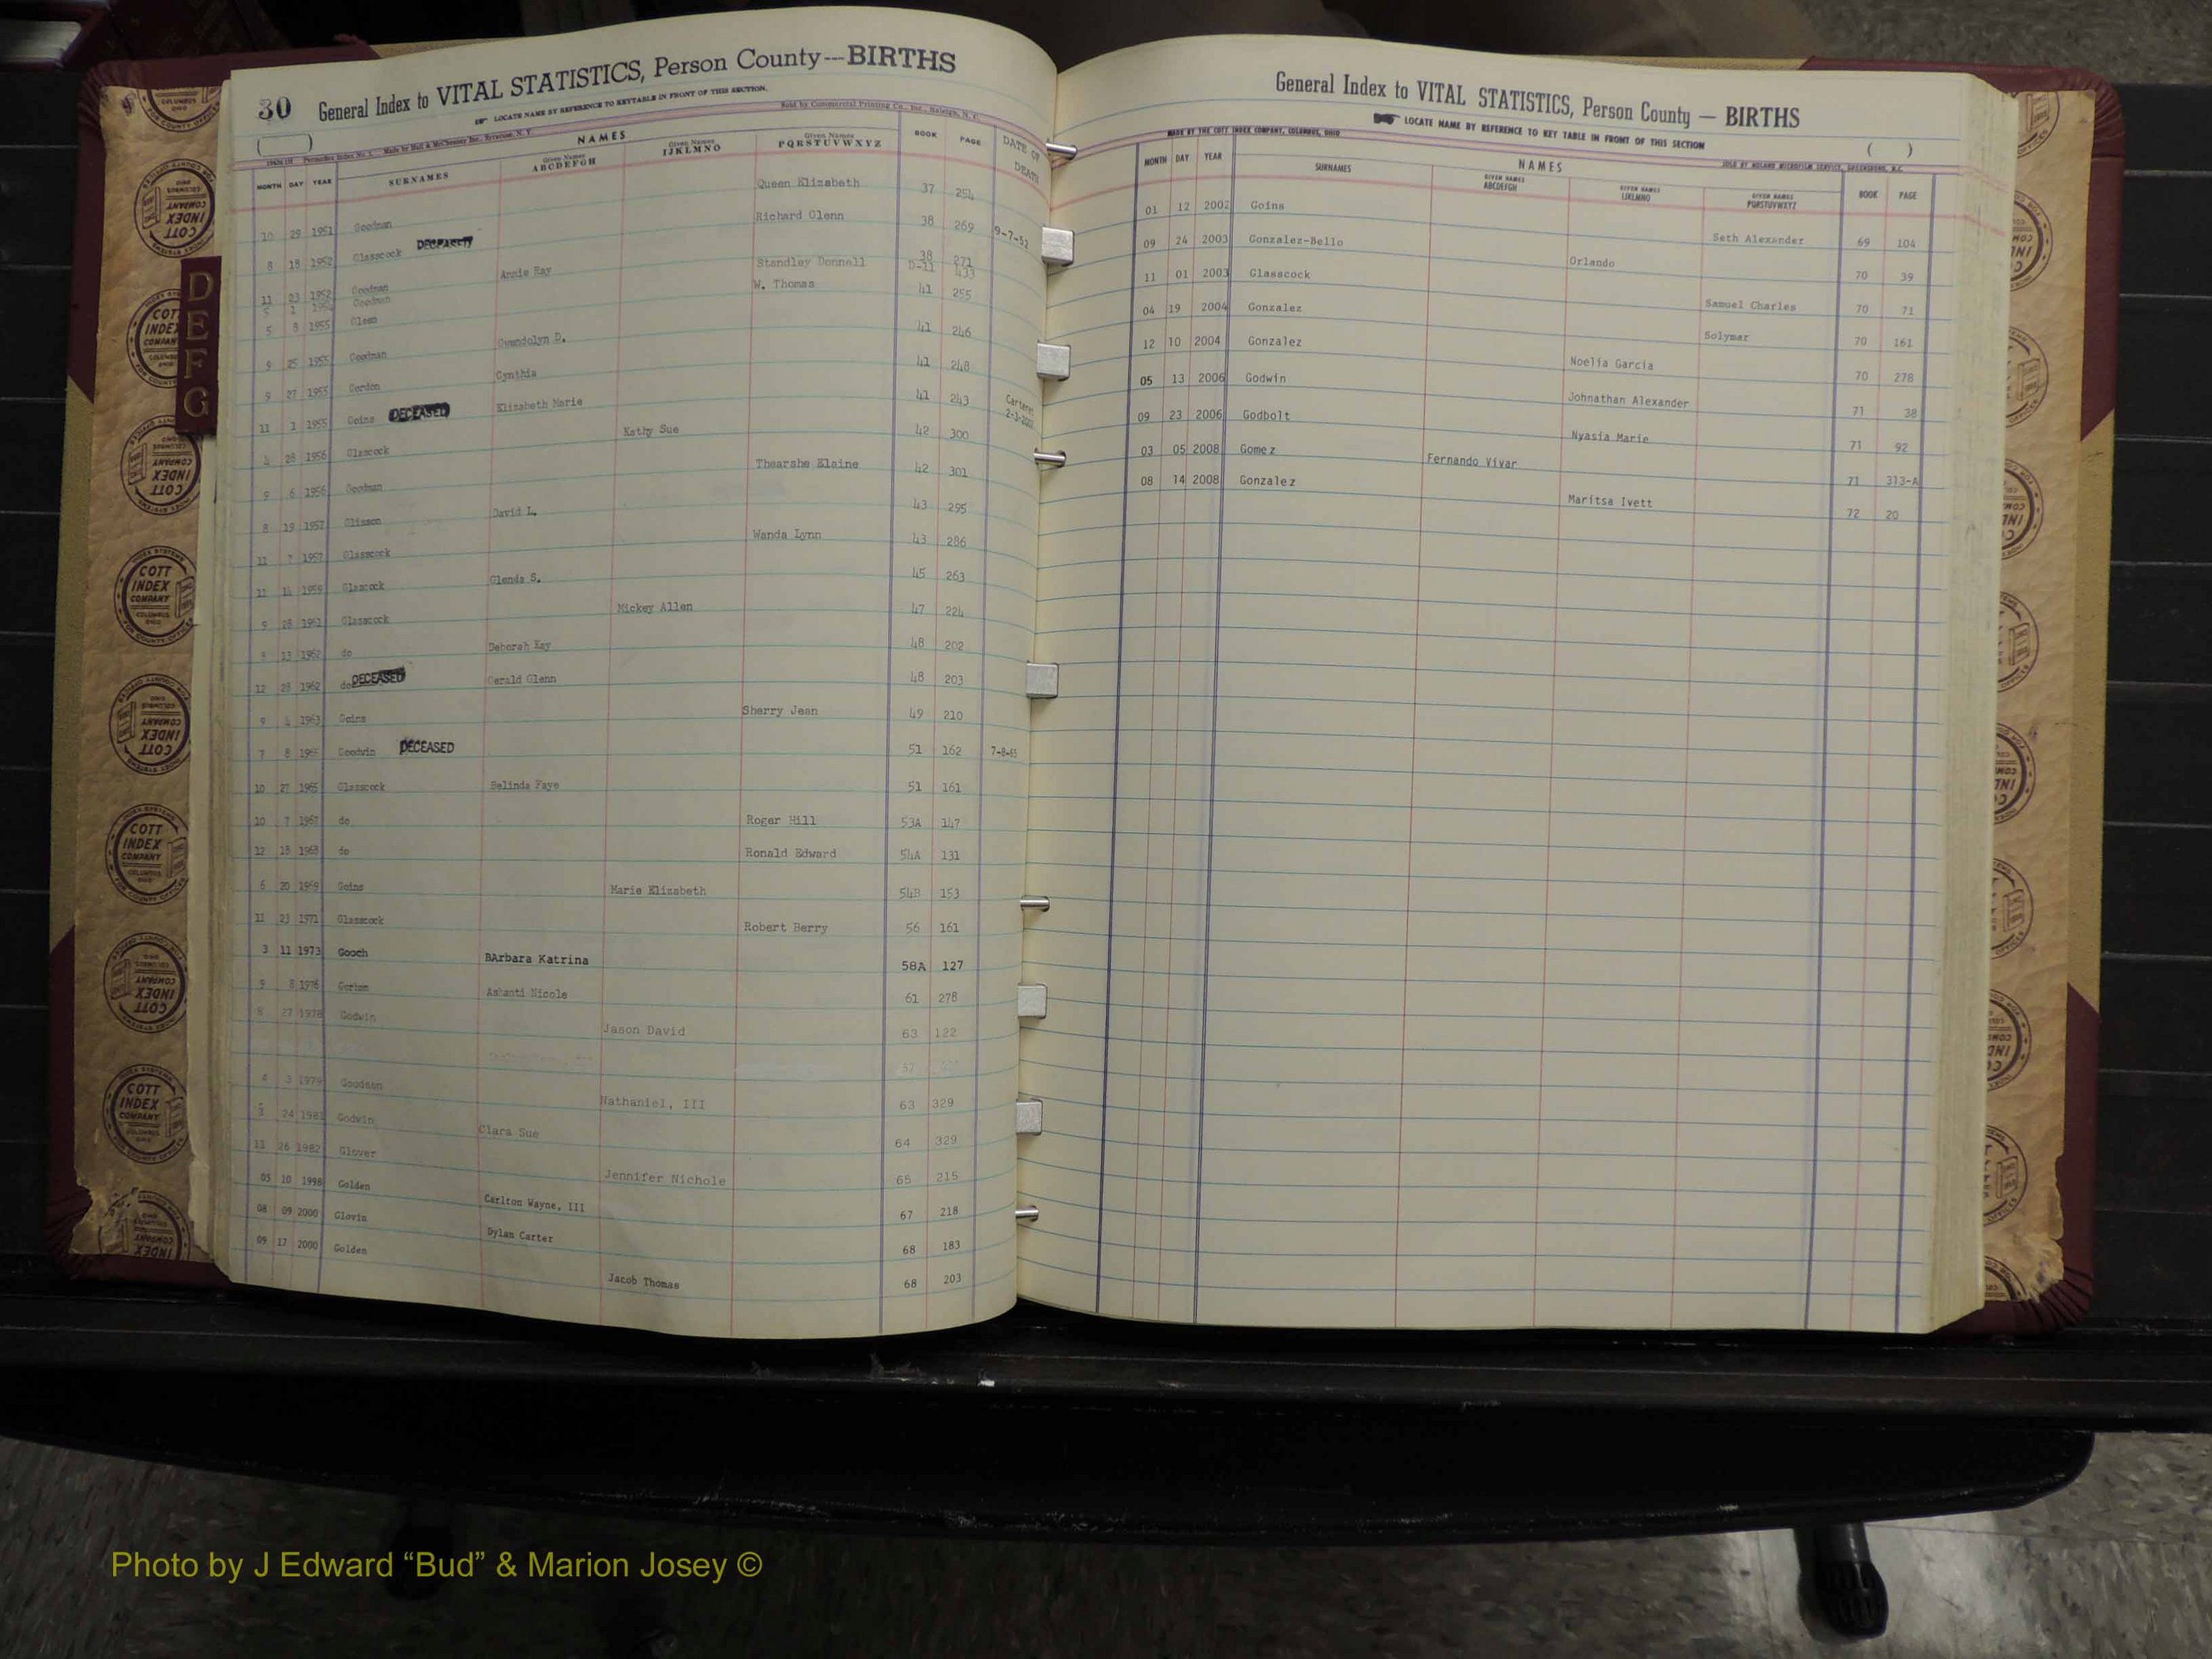 30 General Index to VITAL STATISTICS, Person County---BIRTHS
LOCATE NAME BY REFERENCE TO KEYTABLE IN FRONT OF THIS SECTION.
Sold by Commercial Printing Co., Inc., Raleigh, N. C.
NAMES
MONTH DAY YEAR SURNAMES Given Names ABCDEFGH Given Names IJKLMNO Given Names PQRSTUVWXYZ BOOK PAGE DATE OF DEATH
10 29 1951 Goodman Queen Elizabeth 37 254
8 18 1952 Glasscock DECEASED Richard Glenn 38 269 9-7-52
11 23 1952 Goodman Standley Donnell 38 271
5 1 Goodman Annie Ray D-11 433
5 8 1955 Glenn W. Thomas 41 255
9 25 1955 Goodman Gwendolyn D. 41 246
9 27 1955 Gordon Cynthia 41 248
11 1 1955 Goins DECEASED Elizabeth Marie 41 243 Carteret
28 1956 Glascock Kathy Sue 42 300
9 6 1956 Goodman Thearshe Elaine 42 301
8 19 1957 Glisson David L. 43 295
11 7 1957 Glasscock Wanda Lynn 43 286
11 14 1959 Glascock Glenda S. 45 263
9 28 1961 Glasscock Mickey Allen 47 224
8 13 1962 do Deborah Kay 48 202
12 28 1962 do DECEASED Gerald Glenn 48 203
9 4 1963 Goins Sherry Jean 49 210
7 8 1965 Goodwin DECEASED 51 162 7-8-65
10 27 1965 Glasscock Belinda Faye 51 161
10 7 1967 do Roger Hill 53A 147
12 18 1968 do Ronald Edward 54A 131
5 20 1969 Goins Marie Elizabeth 54B 153
11 23 1971 Glasscock Robert Berry 56 161
3 11 1973 Gooch BArbara Katrina 58A 127
9 8 1976 Gorham Ashanti Nicole 61 278
8 27 1978 Godwin Jason David 63 122
4 3 1979 Goodson Nathaniel, III 63 329
3 24 1981 Godwin Clara Sue 64 329
11 26 1982 Glover Jennifer Nichole 65 215
05 10 1998 Golden Carlton Wayne, III 67 218
08 09 2000 Glovin Dylan Carter 68 183
09 17 2000 Golden Jacob Thomas 68 203
D
E
F
G
General Index to VITAL STATISTICS, Person County — BIRTHS
LOCATE NAME BY REFERENCE TO KEY TABLE IN FRONT OF THIS SECTION
MADE BY THE COTT INDEX COMPANY, COLUMBUS, OHIO
SOLD BY NOLAND MICROFILM SERVICE, GREENSBORO, N.C.
NAMES
MONTH DAY YEAR SURNAMES GIVEN NAMES ABCDEFGH GIVEN NAMES IJKLMNO GIVEN NAMES PQRSTUVWXYZ BOOK PAGE
01 12 2002 Goins Seth Alexander 69 104
09 24 2003 Gonzalez-Bello Orlando 70 39
11 01 2003 Glasscock Samuel Charles 70 71
04 19 2004 Gonzalez Solymar 70 161
12 10 2004 Gonzalez Noelia Garcia 70 278
05 13 2006 Godwin Johnathan Alexander 71 38
09 23 2006 Godbolt Nyasia Marie 71 92
03 05 2008 Gomez Fernando Vivar 71 313-A
08 14 2008 Gonzalez Maritsa Ivett 72 20
COTT INDEX COMPANY
Photo by J Edward “Bud” & Marion Josey ©